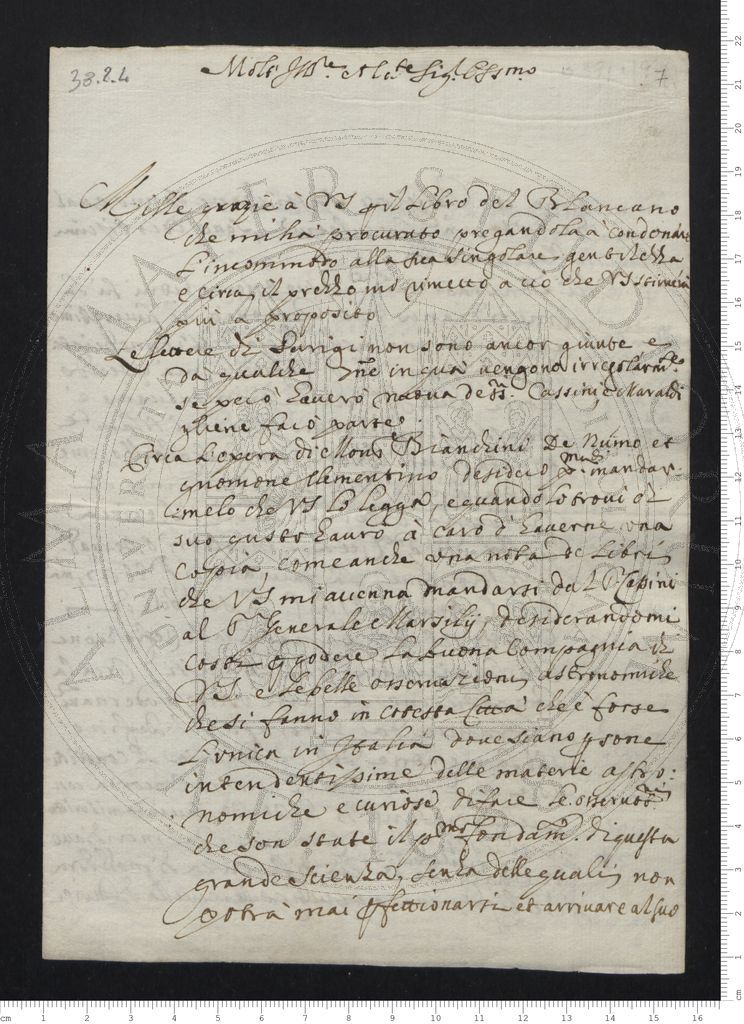 38.2.4
7
Molt' Ill.re et Ec.te Sig. Oss.mo
Mille grazie à VS p il Libro del Blancano
che mi hà procurato pregandola à condonare
l'incommodo alla sua singolare gentilezza
e circa il prezzo mi rimetto a ciò che VS stimerà
più a proposito
Le lettere di Parigi non sono ancor giunte e
da qualche in quà vengono irregolarm.te
se però haverò nuova de SS. Cassini, e Maraldi
gliene farò parte.
Circa l'opera di Mons. Bianchini De Numo et
gnomone Clementino desidero p mandar
melo che VS lo legga, e quando lo trovi di
suo gusto havrò à caro d'haverne una
copia, come anche una nota de libri
che VS mi avenna mandarsi dal
al Generale Marsilij, desiderandomi
costì p godere la buona compagnia di
VS. e le belle osservazioni astronomiche
che si fanno in cotesta Città che è forse
l'unica in Italia dove siano psone
intendentissime delle materie astro:
nomiche e curiose di fare le osservat.ni
che son state il p.mo fondam.to di questa
grande scienza, senza delle quali non
potrà mai pfettionarsi et arrivare al suo